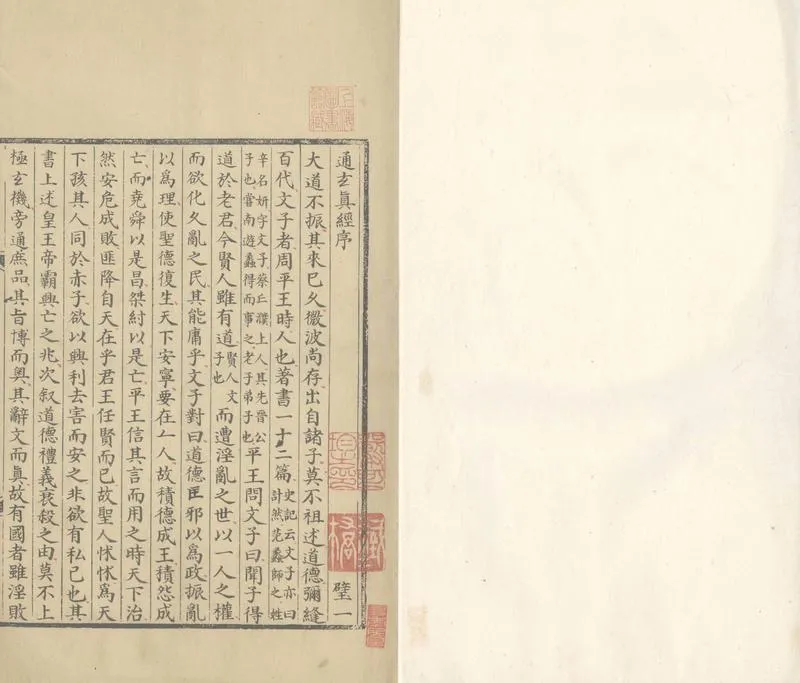 通玄眞經序 璧一
大道不振其來已久微波尚存出自諸子莫不祖述道德彌縫
百代文子者周平王時人也著書一十二篇史記云文子亦曰計然范蠡師之姓
辛名妍字文子蔡丘濮上人其先晉公子也嘗南遊蠡得而事之老子弟子也平王問文子曰聞子得
道於老君今賢人雖有道賢人文子也而遭淫亂之世以一人之權
而欲化久亂之民其能庸乎文子對曰道德匡邪以爲政振亂
以爲理使聖德復生天下安寧要在一人故積德成王積怨成
亡而堯舜以是昌桀紂以是亡平王信其言而用之時天下治
然安危成敗匪降自天在乎君王任賢而已故聖人怵怵爲天
下孩其人同於赤子欲以興利去害而安之非欲有私己也其
書上述皇王帝霸興亡之兆次叙道德禮義衰殺之由莫不上
極玄機旁通庶品其旨博而奧其辭文而眞故有國者雖淫敗